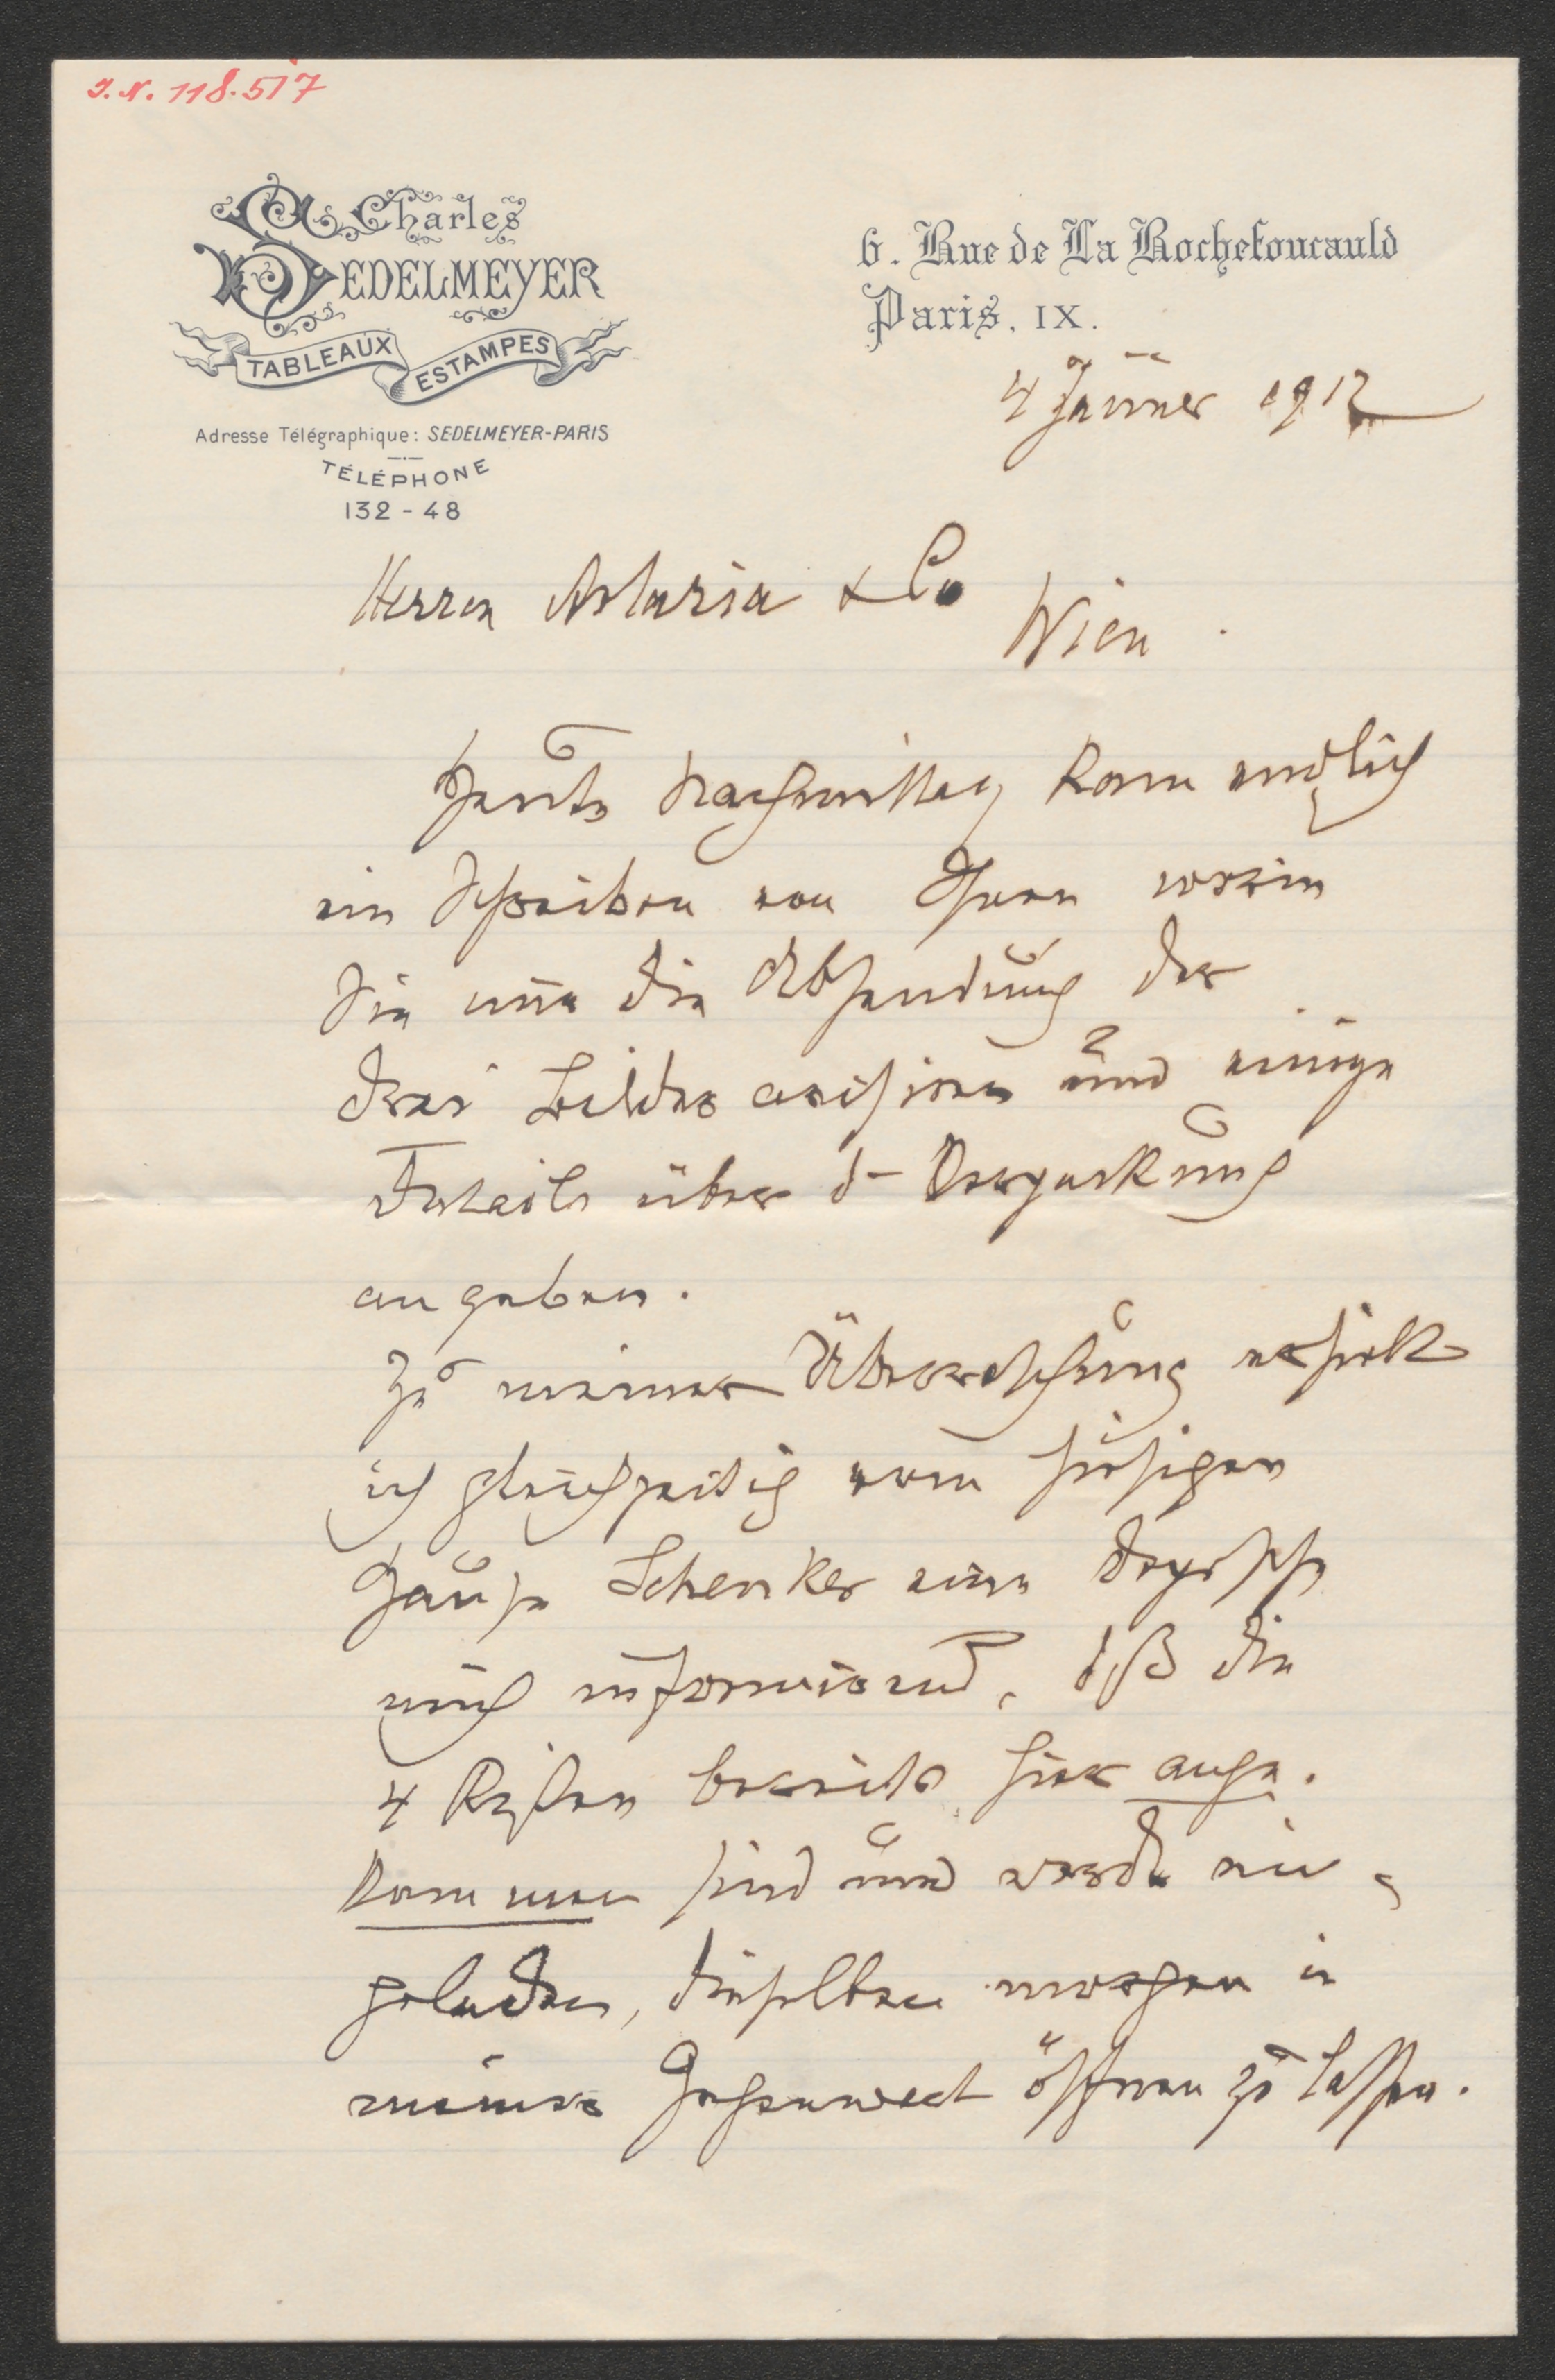 I.N. 118.517
Charles
SEDELMEYER
TABLEAUX ESTAMPES
Adresse Télégraphique: SEDELMEYER-PARIS
TÉLÉPHONE
132-48
6. Rue de La Rochefoucauld
Paris, IX.
4 Jänner 1912
Herren Artaria & Co
Wien.
Heute Nachmittag kam endlich
ein Schreiben von Ihnen worin
Sie mir die Absendung der
drei Bilder avisiren und einige
Details über d- Verpackung
angeben.
Zu meiner Überraschung erhielt
ich gleichzeitig vom hiesigen
Hause Schenker eine Depesche
mich informirend, dß die
4 Kisten bereits hier ange-
kommen sind und werde ein-
geladen, dieselben morgen in
meiner Gegenwart öffnen zu lassen.